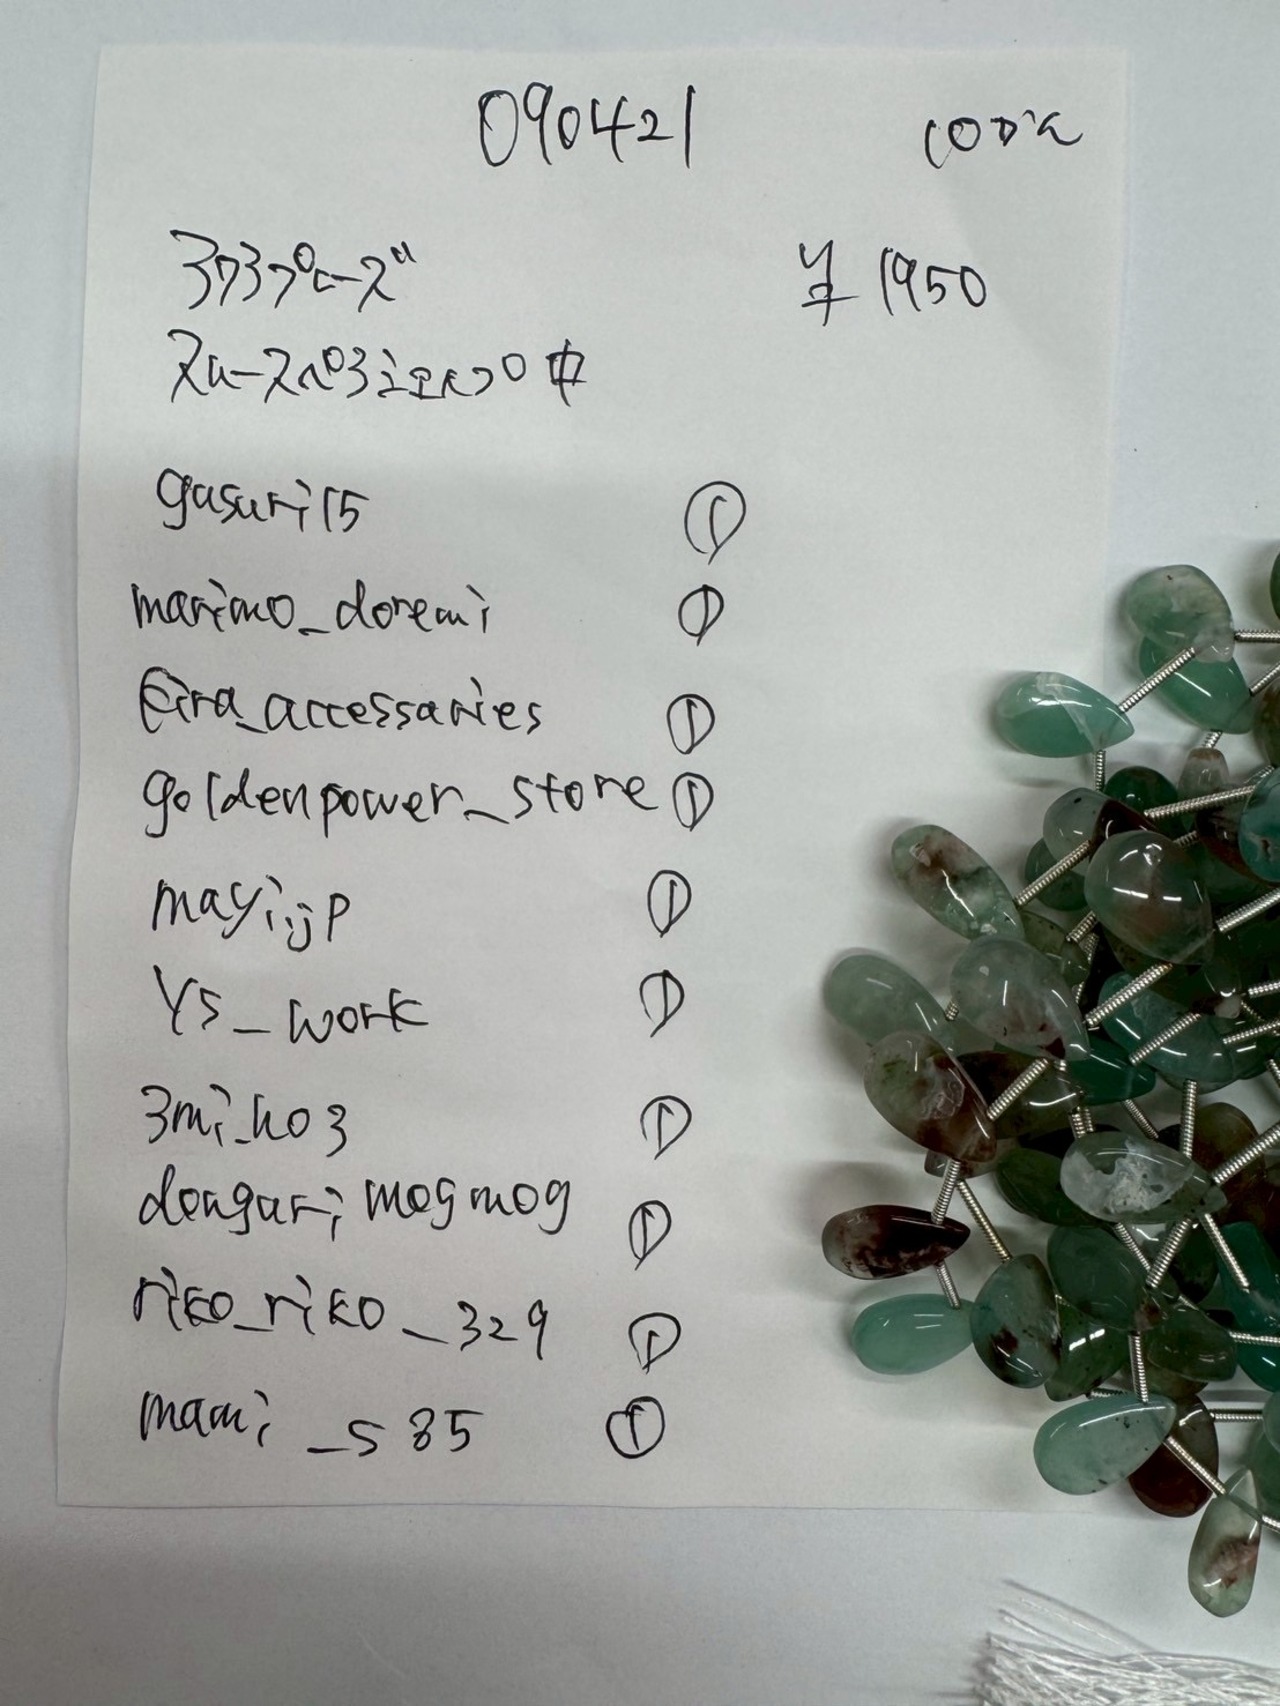 090421
¥1950
gasuri15
①
marimo_doremi
①
Eira_accessaries
①
goldenpower_store ①
mayi.jp
①
YS_work
①
3mi_ho3
①
dongurimogmog
①
riko_riko_329
①
mami_s85
①